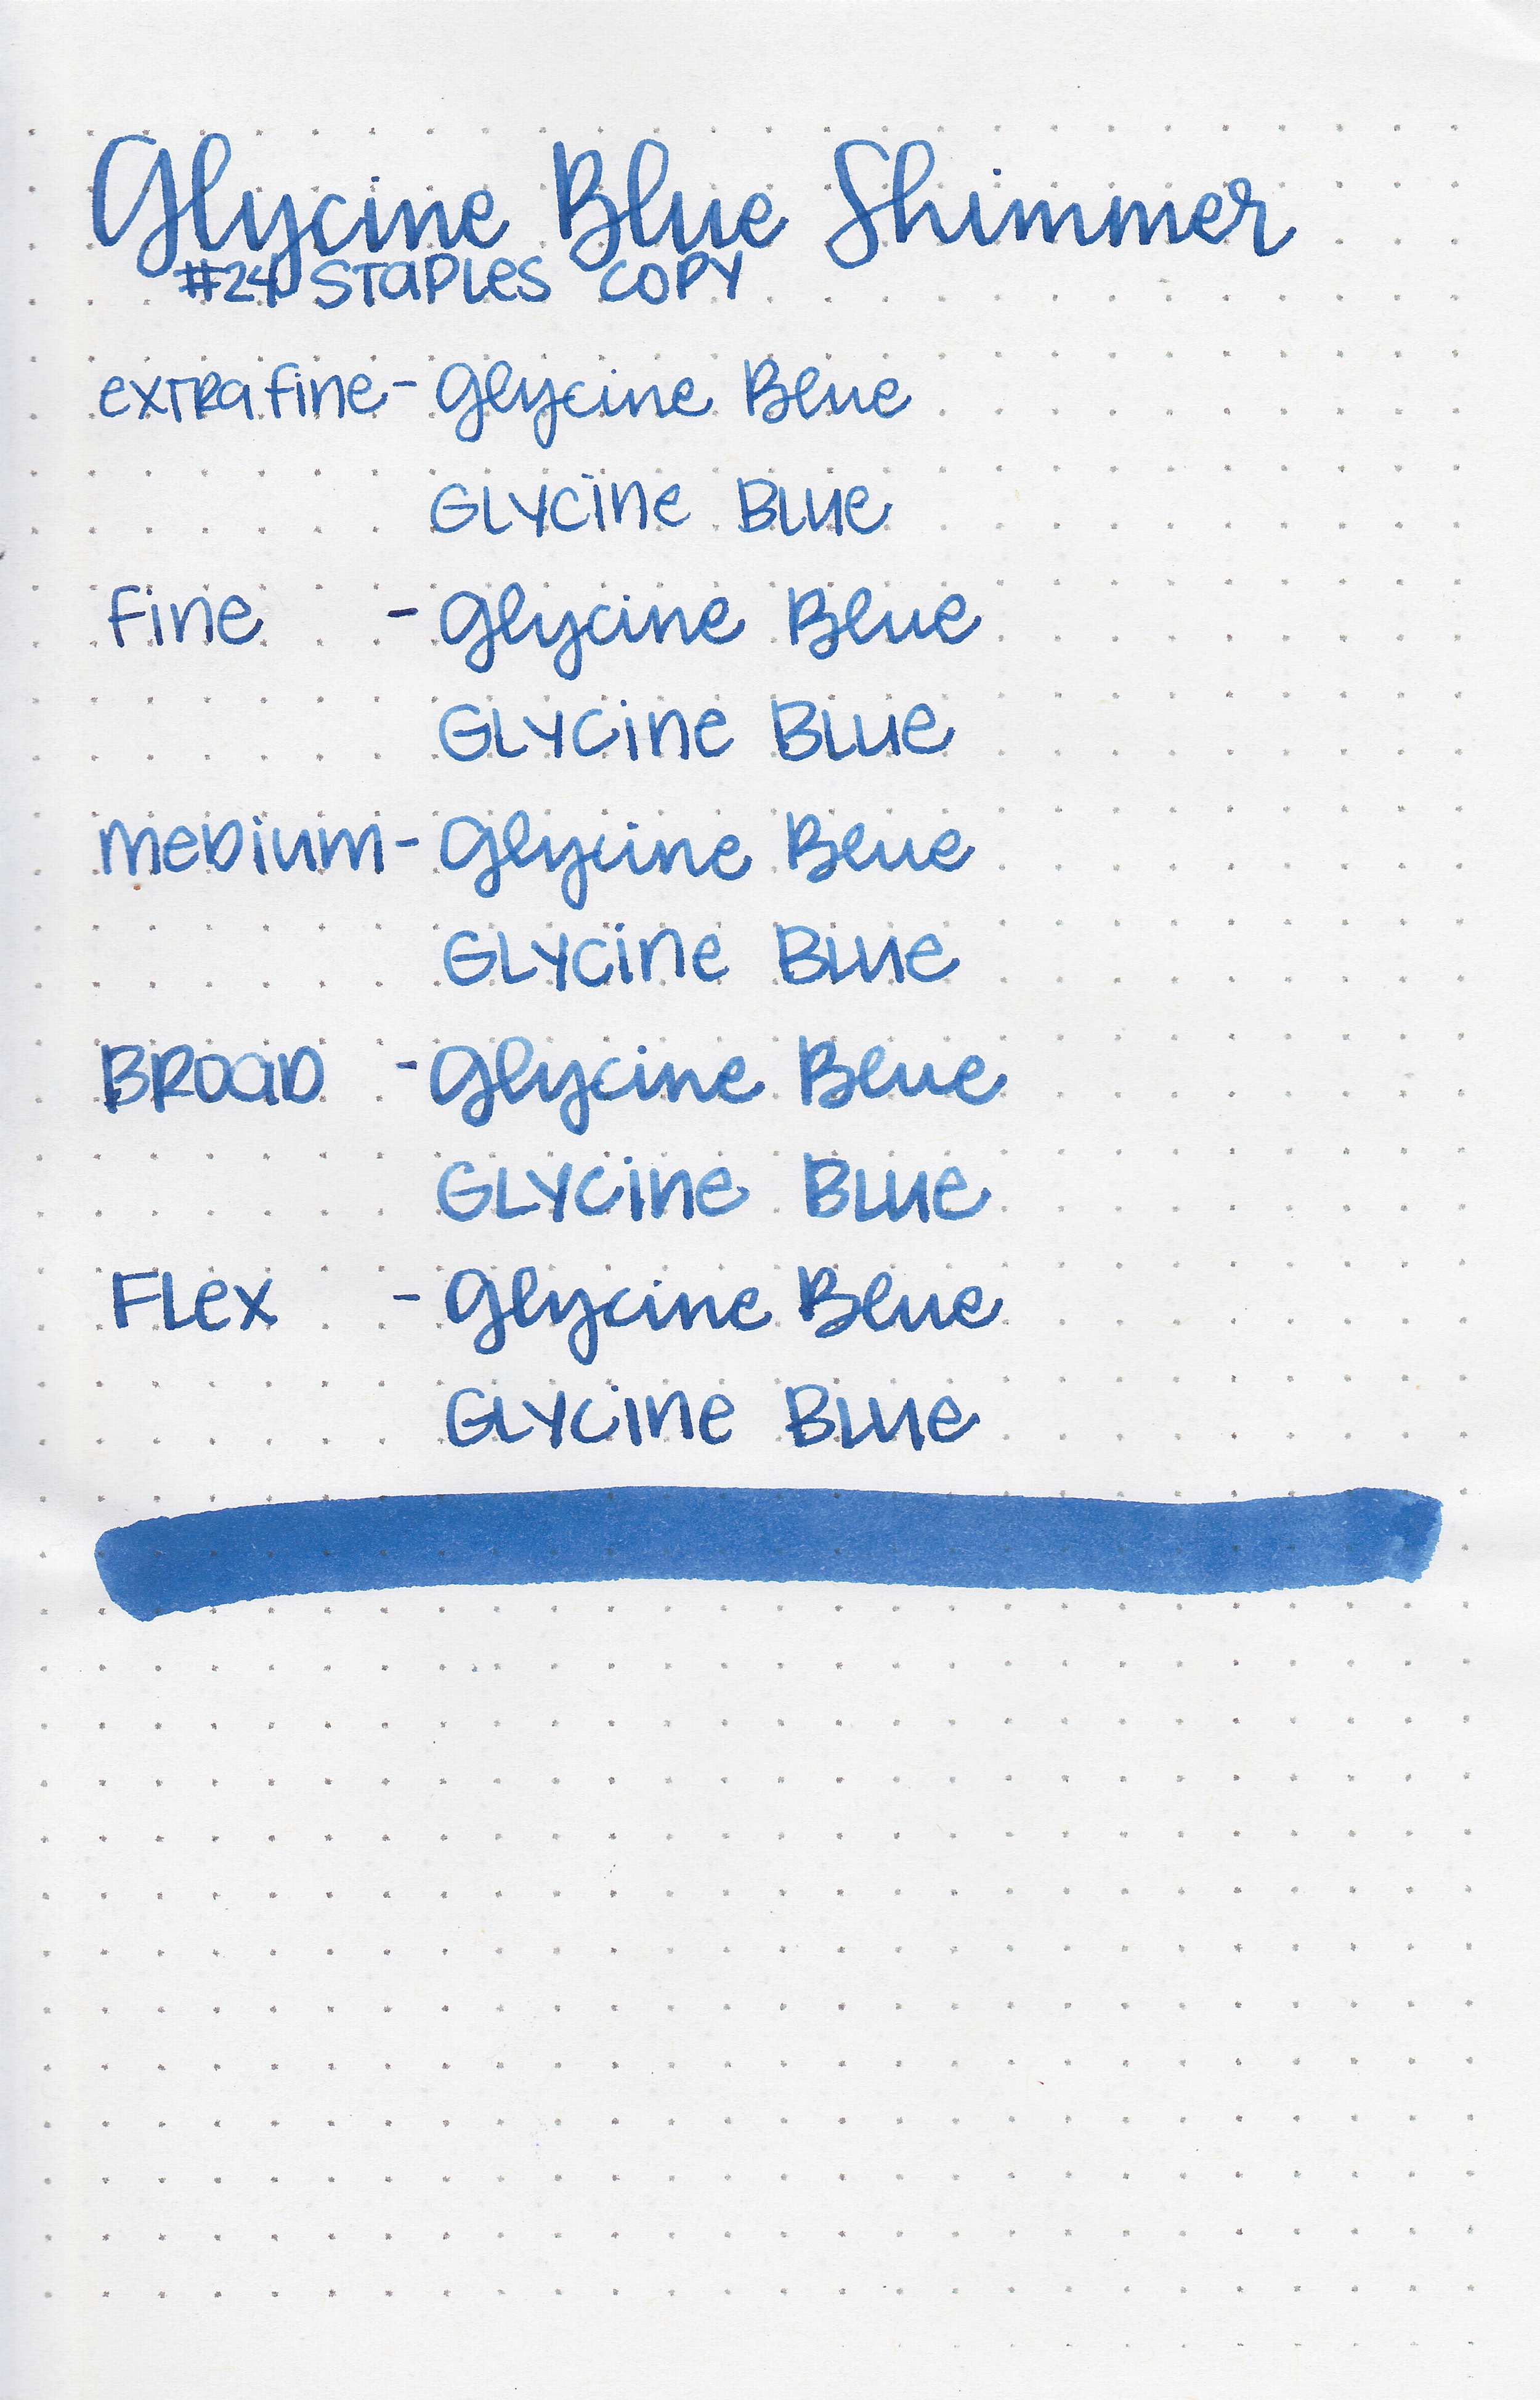 Glycine Blue Shimmer
#24 Staples Copy
extra fine - Glycine Blue
Glycine Blue
Fine - Glycine Blue
Glycine Blue
Medium - Glycine Blue
Glycine Blue
Broad - Glycine Blue
Glycine Blue
Flex - Glycine Blue
Glycine Blue